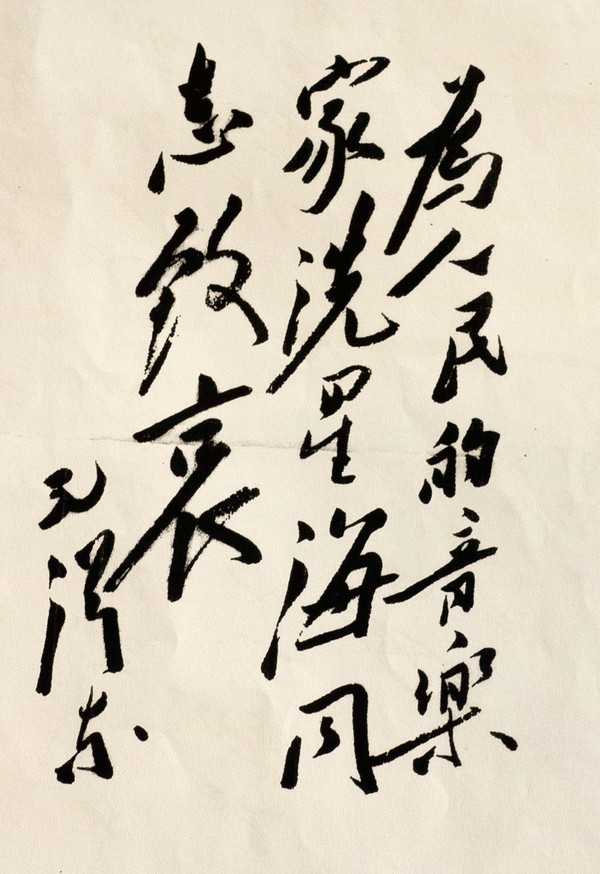 為人民的音樂
家冼星海同
志致哀
毛澤东